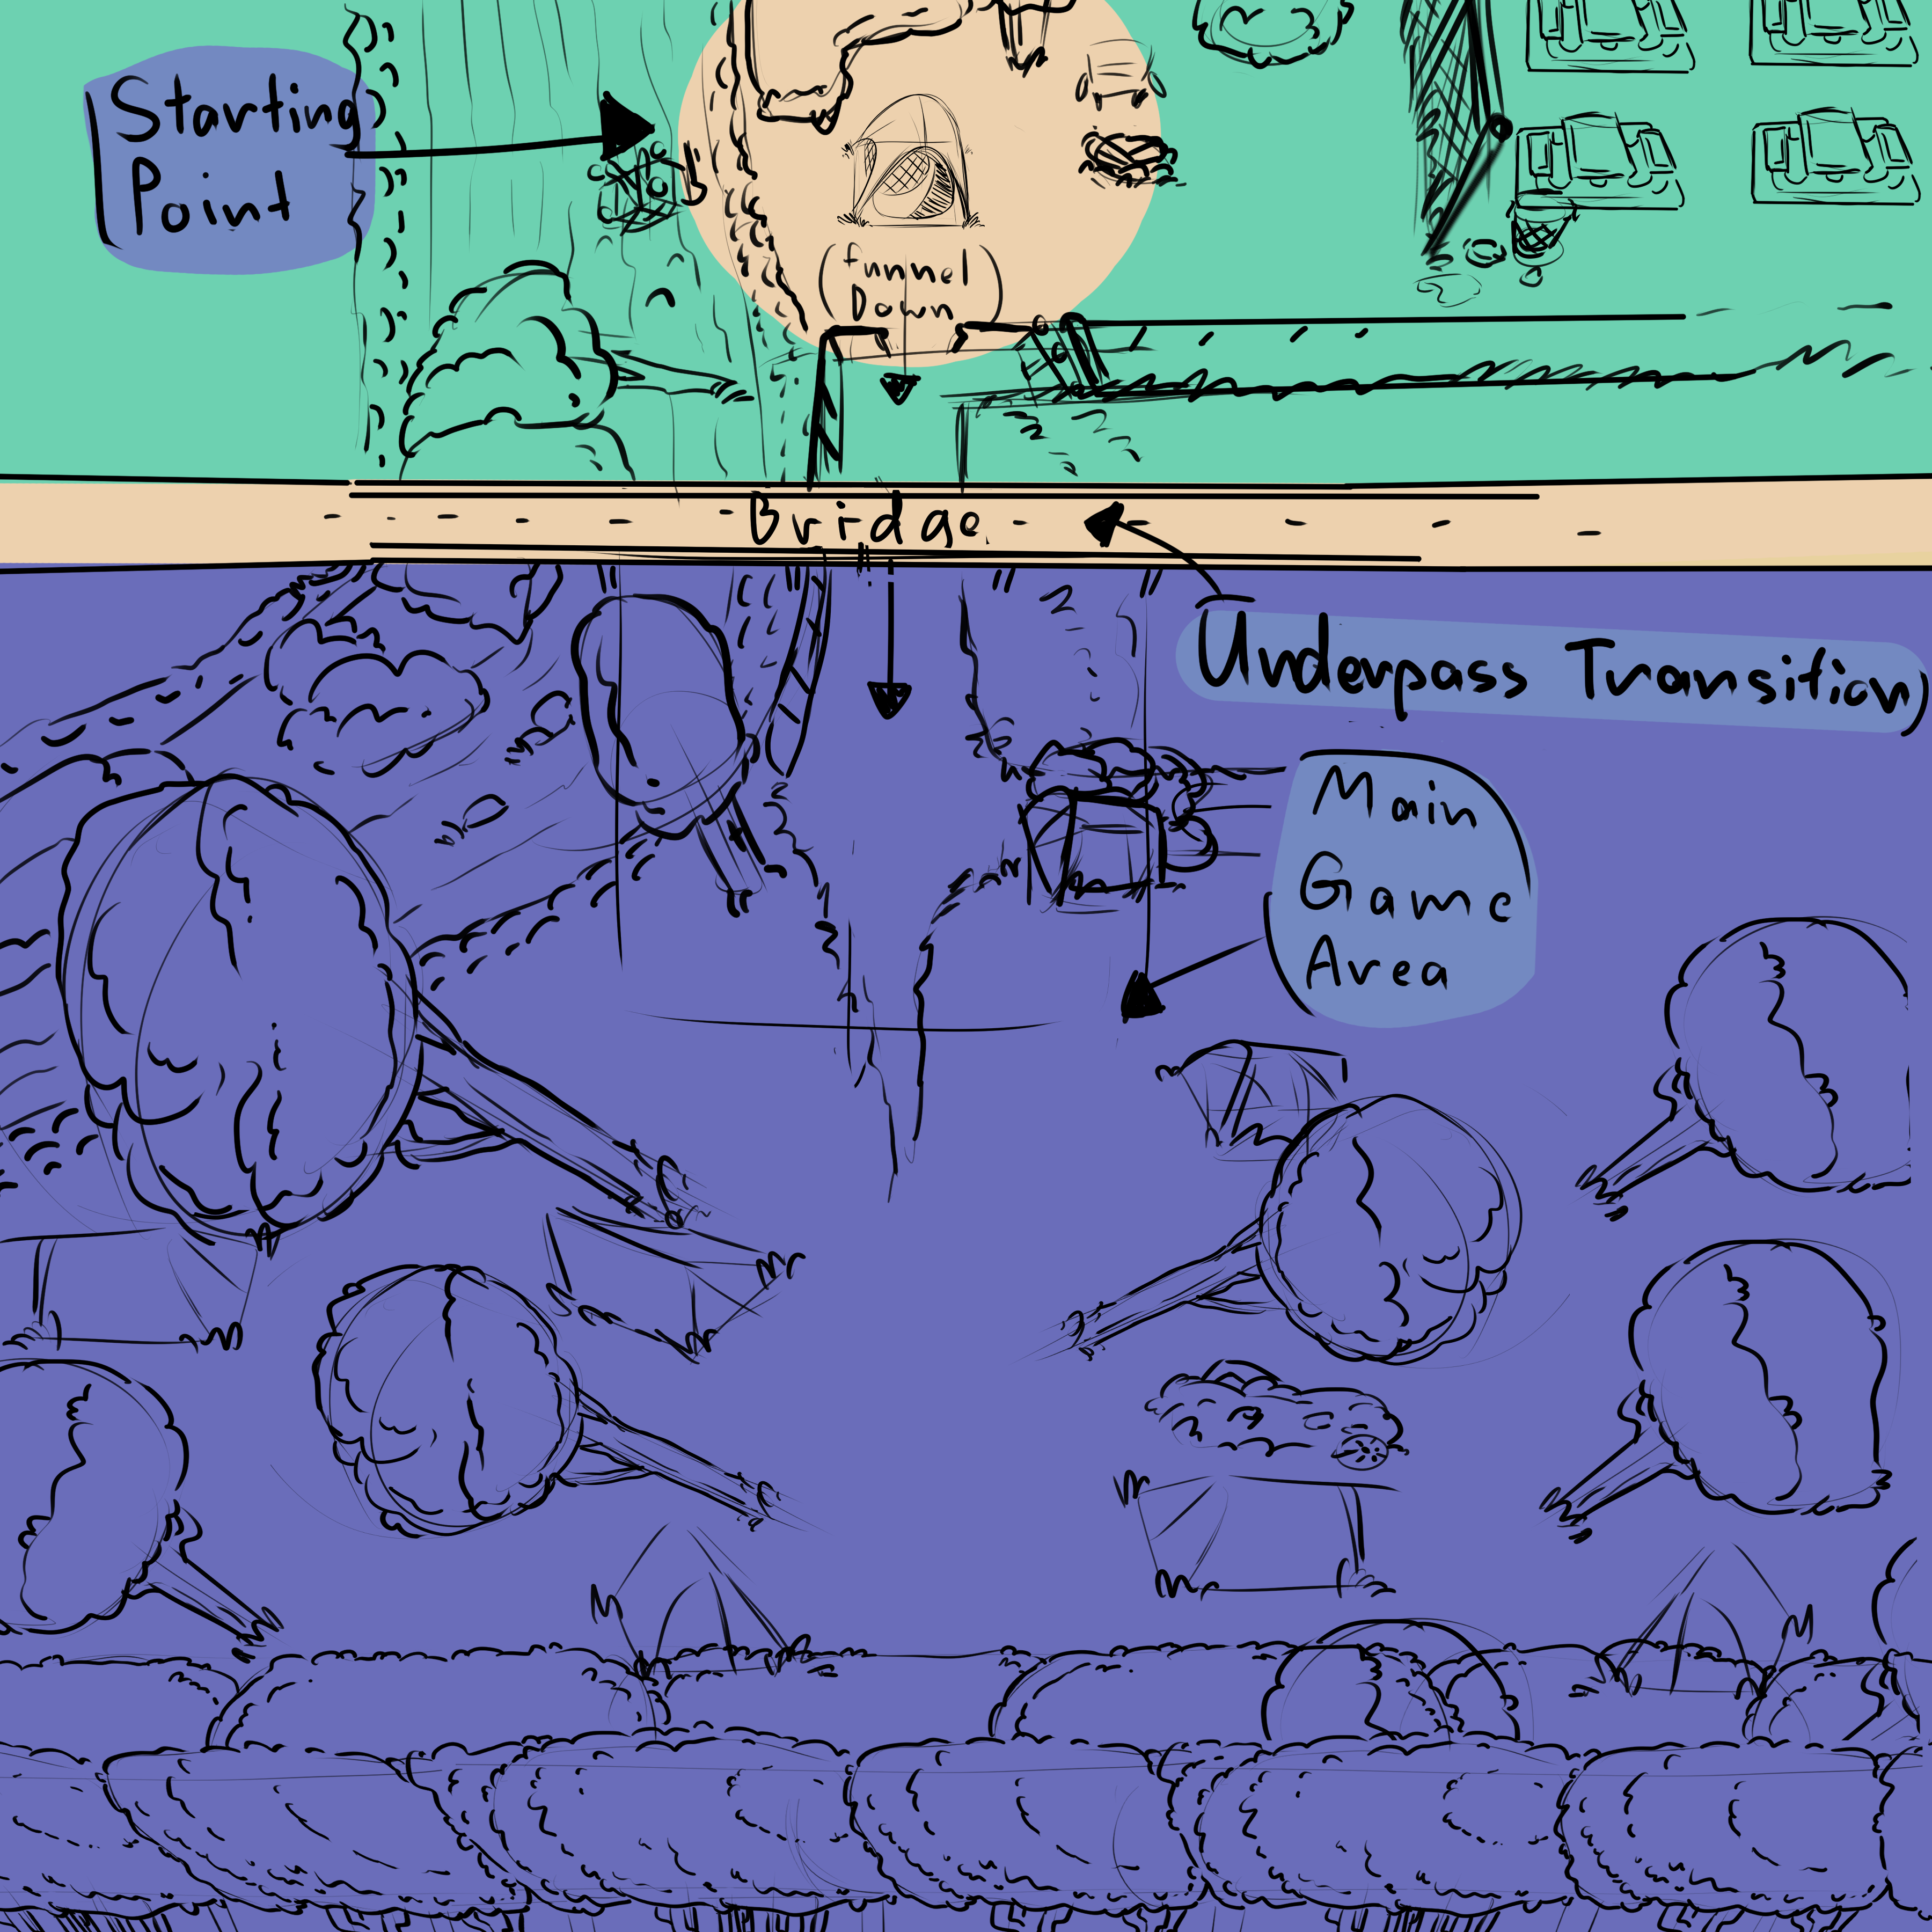 Starting
Point
(funnel
Down)
Bridge
Underpass Transition
Main
Game
Area